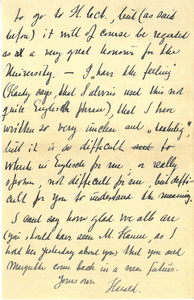 to go to H. Ch. but (as said
before) it will of course be regarded
as a very great honour for the
University. — I "have the feeling"
(Hardy says, that I always use this not
quite Englishe phrase), that I have
written so very unclear and
but it is so difficult to
write in Englishe for me, or really
spoken, not difficult for me, but diffi-
cult for you to understand the meaning.
I can't say how glad we all are
(you should have seen M. when I
told her yesterday about you) that you and
Margrethe come back in a near future.
Yours own
Harald.